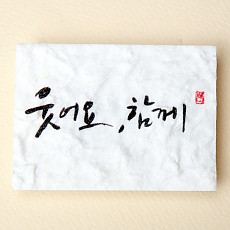 웃어요, 함께